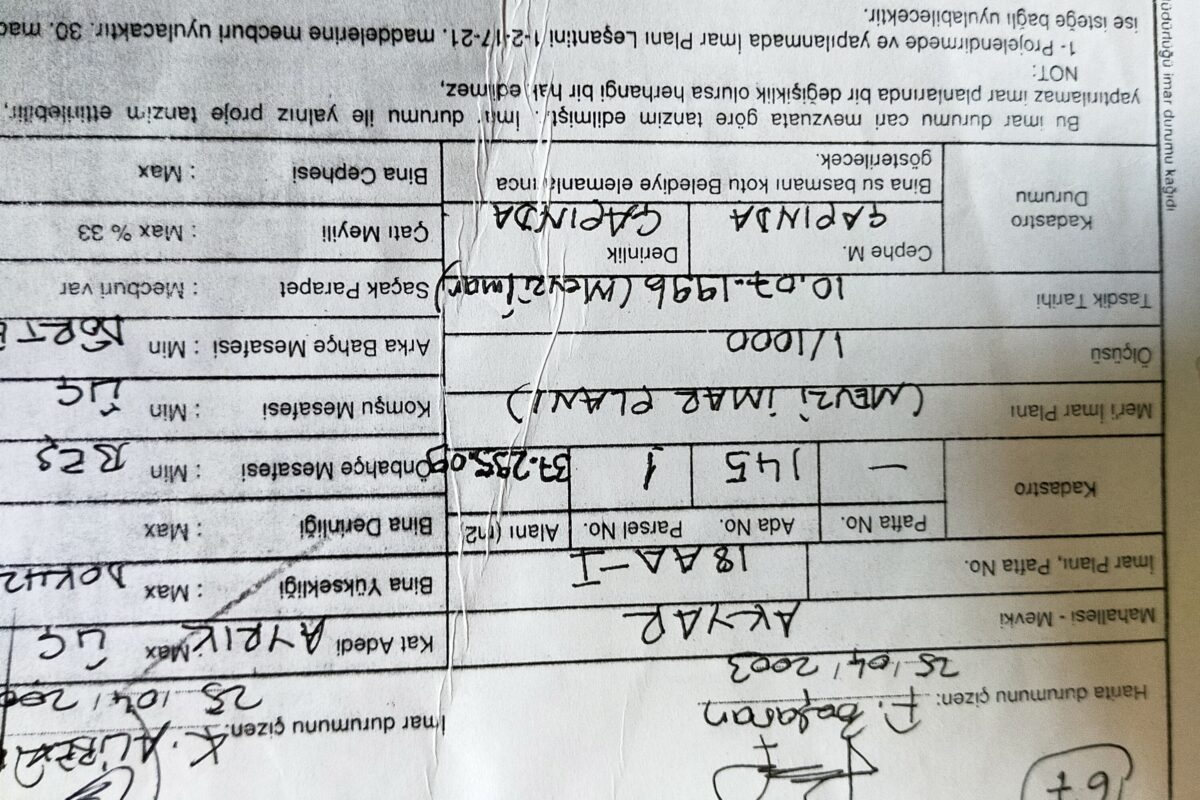 67
Harita durumunu çizen: F. Başaran
25/04/2003
İmar durumunu çizen: K. ALİRIZA
25/04/200
Mahallesi - Mevki AKYAR
Kat Adedi AYRIK Max ÜÇ
İmar Planı, Pafta No. 18 AA-I
Bina Yüksekliği : Max DOKUZ
Kadastro
Pafta No. Ada No. Parsel No. Alanı (m2)
— 145 1 37.295.00
Bina Derinliği : Max
Önbahçe Mesafesi : Min BEŞ
Mer'i İmar Planı (MEVZİ İMAR PLANI)
Komşu Mesafesi : Min ÜÇ
Ölçüsü 1/1000
Arka Bahçe Mesafesi : Min DÖRT
Tasdik Tarihi 10.07.1996 (Mevzi İmar)
Saçak Parapet : Mecburi var
Kadastro Durumu
Cephe M. Derinlik
ÇAPINDA ÇAPINDA
Çatı Meyili : Max % 33
Bina su basmanı kotu Belediye elemanlarınca
gösterilecek.
Bina Cephesi : Max
Bu imar durumu cari mevzuata göre tanzim edilmiştir. İmar durumu ile yalnız proje tanzim ettirilebilir,
yaptırılamaz imar planlarında bir değişiklik olursa herhangi bir hak edimez,
NOT:
1- Projelendirmede ve yapılanmada İmar Planı Leşantini 1-2-17-21. maddelerine mecburi uyulacaktır. 30. mad
ise isteğe bağlı uyulabilecektir.
üdürlüğü imar durumu kağıdı